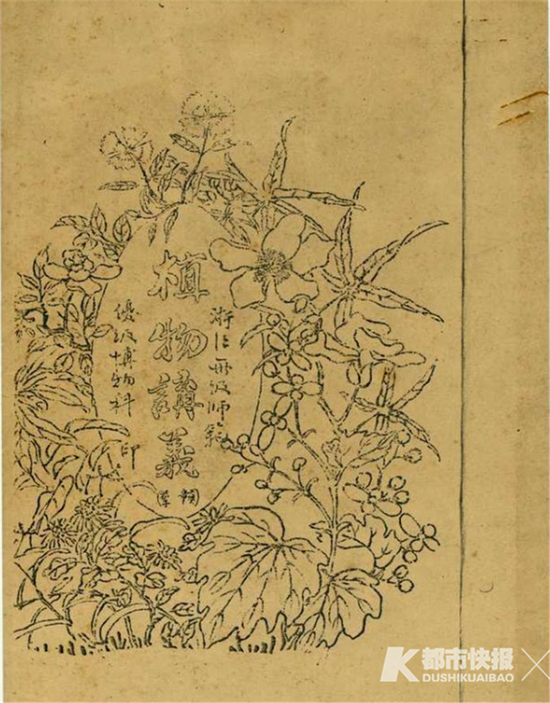 浙江兩級師範
植物講義
優級博物科 印
都市快报
DUSHIKUAIBAO